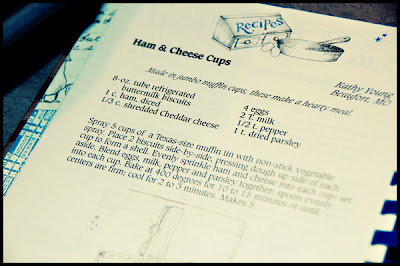 RECIPES
Ham & Cheese Cups
Made in jumbo muffin cups, these make a hearty meal.
Kathy Young
Beaufort, MO
8-oz. tube refrigerated
buttermilk biscuits
1 c. ham, diced
1/3 c. shredded Cheddar cheese
4 eggs
2 T. milk
1/2 t. pepper
1 t. dried parsley
Spray 5 cups of a Texas-size muffin tin with non-stick vegetable
spray. Place 2 biscuits side-by-side, pressing dough up side of each
cup to form a shell. Evenly sprinkle ham and cheese into each cup; set
aside. Blend eggs, milk, pepper and parsley together; spoon evenly
into each cup. Bake at 400 degrees for 10 to 15 minutes or until
centers are firm; cool for 2 to 3 minutes. Makes 5.